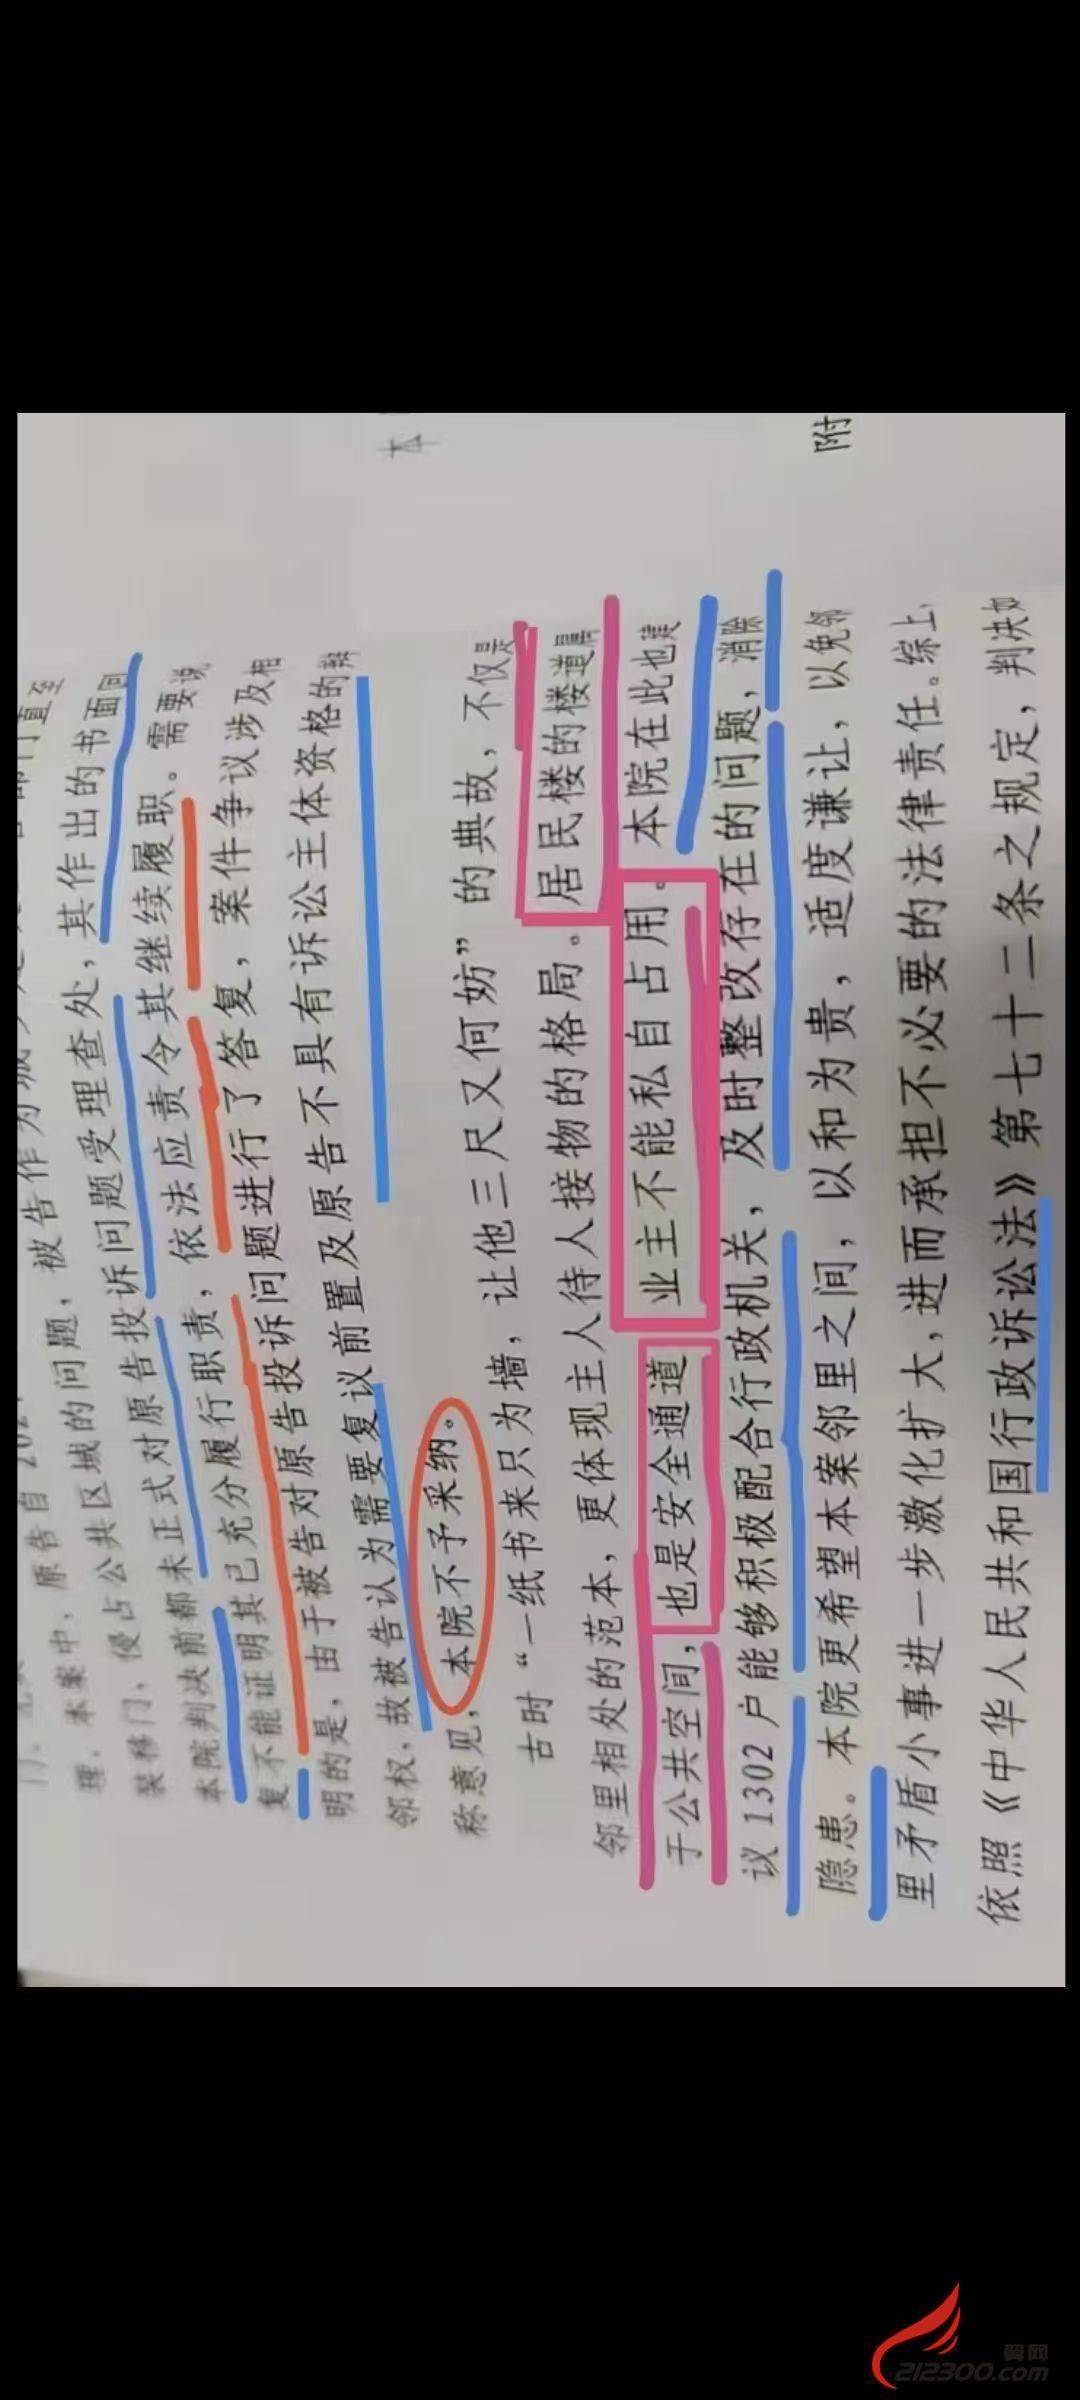 理。本案中，原告自
装移门，侵占公共区域的问题，被告作为城
本院判决前都未正式对原告投诉问题受理查处，其作出的书面回
复不能证明其已充分履行职责，依法应责令其继续履职。需要说
明的是，由于被告对原告投诉问题进行了答复，案件争议涉及相
邻权，故被告认为需要复议前置及原告不具有诉讼主体资格的辩
称意见，本院不予采纳。
古时“一纸书来只为墙，让他三尺又何妨”的典故，不仅是
邻里相处的范本，更体现主人待人接物的格局。居民楼的楼道属
于公共空间，也是安全通道，业主不能私自占用。本院在此也建
议1302户能够积极配合行政机关，及时整改存在的问题，消除
隐患。本院更希望本案邻里之间，以和为贵，适度谦让，以免邻
里矛盾小事进一步激化扩大，进而承担不必要的法律责任。综上，
依照《中华人民共和国行政诉讼法》第七十二条之规定，判决如
附
本
翼网
212300.com